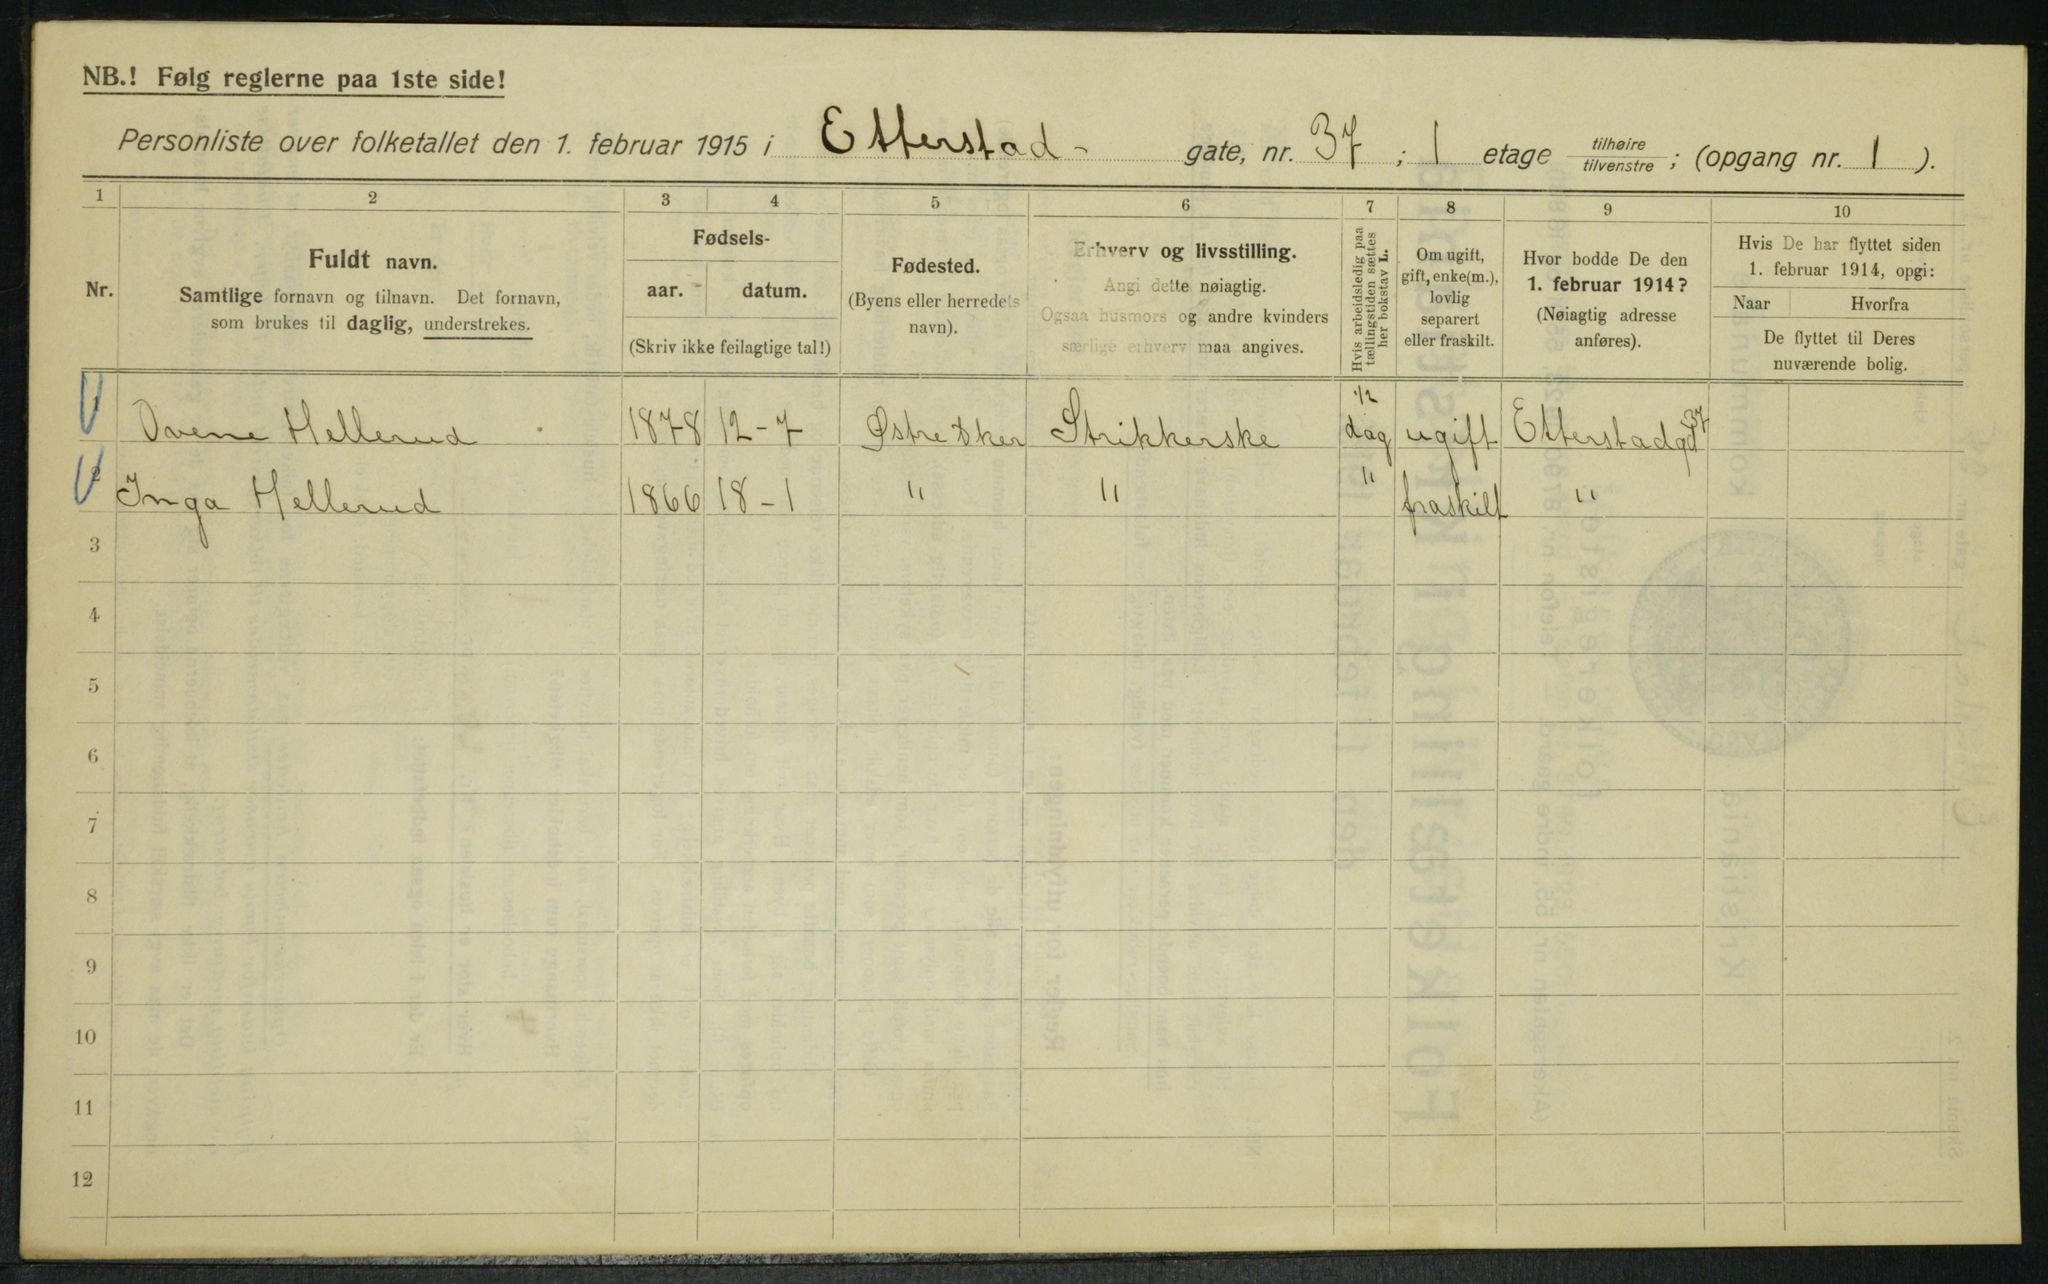 NB.! Følg reglerne paa 1ste side!
Personliste over folketallet den 1. februar 1915 i Etterstad- gate, nr. 37 ; 1 etage tilhøire tilvenstre ; (opgang nr. 1 ).
1 2 3 4 5 6 7 8 9 10
Nr.
Fuldt navn.
Samtlige fornavn og tilnavn. Det fornavn,
som brukes til daglig, understrekes.
Fødsels-
aar. datum.
(Skriv ikke feilagtige tal!)
Fødested.
(Byens eller herredets
navn).
Erhverv og livsstilling.
Angi dette nøiagtig.
Ogsaa husmors og andre kvinders
særlige erhverv maa angives.
Hvis arbeidsledig paa
tællingstiden sættes
her bokstav L.
Om ugift,
gift, enke(m.),
lovlig
separert
eller fraskilt.
Hvor bodde De den
1. februar 1914?
(Nøiagtig adresse
anføres).
Hvis De har flyttet siden
1. februar 1914, opgi:
Naar Hvorfra
De flyttet til Deres
nuværende bolig.
1 Hellerud 1878 12-7 Østre Aker Strikkerske 1/2 dag ugift Etterstadgt 37
2 Inga Hellerud 1866 18-1 " " " fraskilt "
3
4
5
6
7
8
9
10
11
12